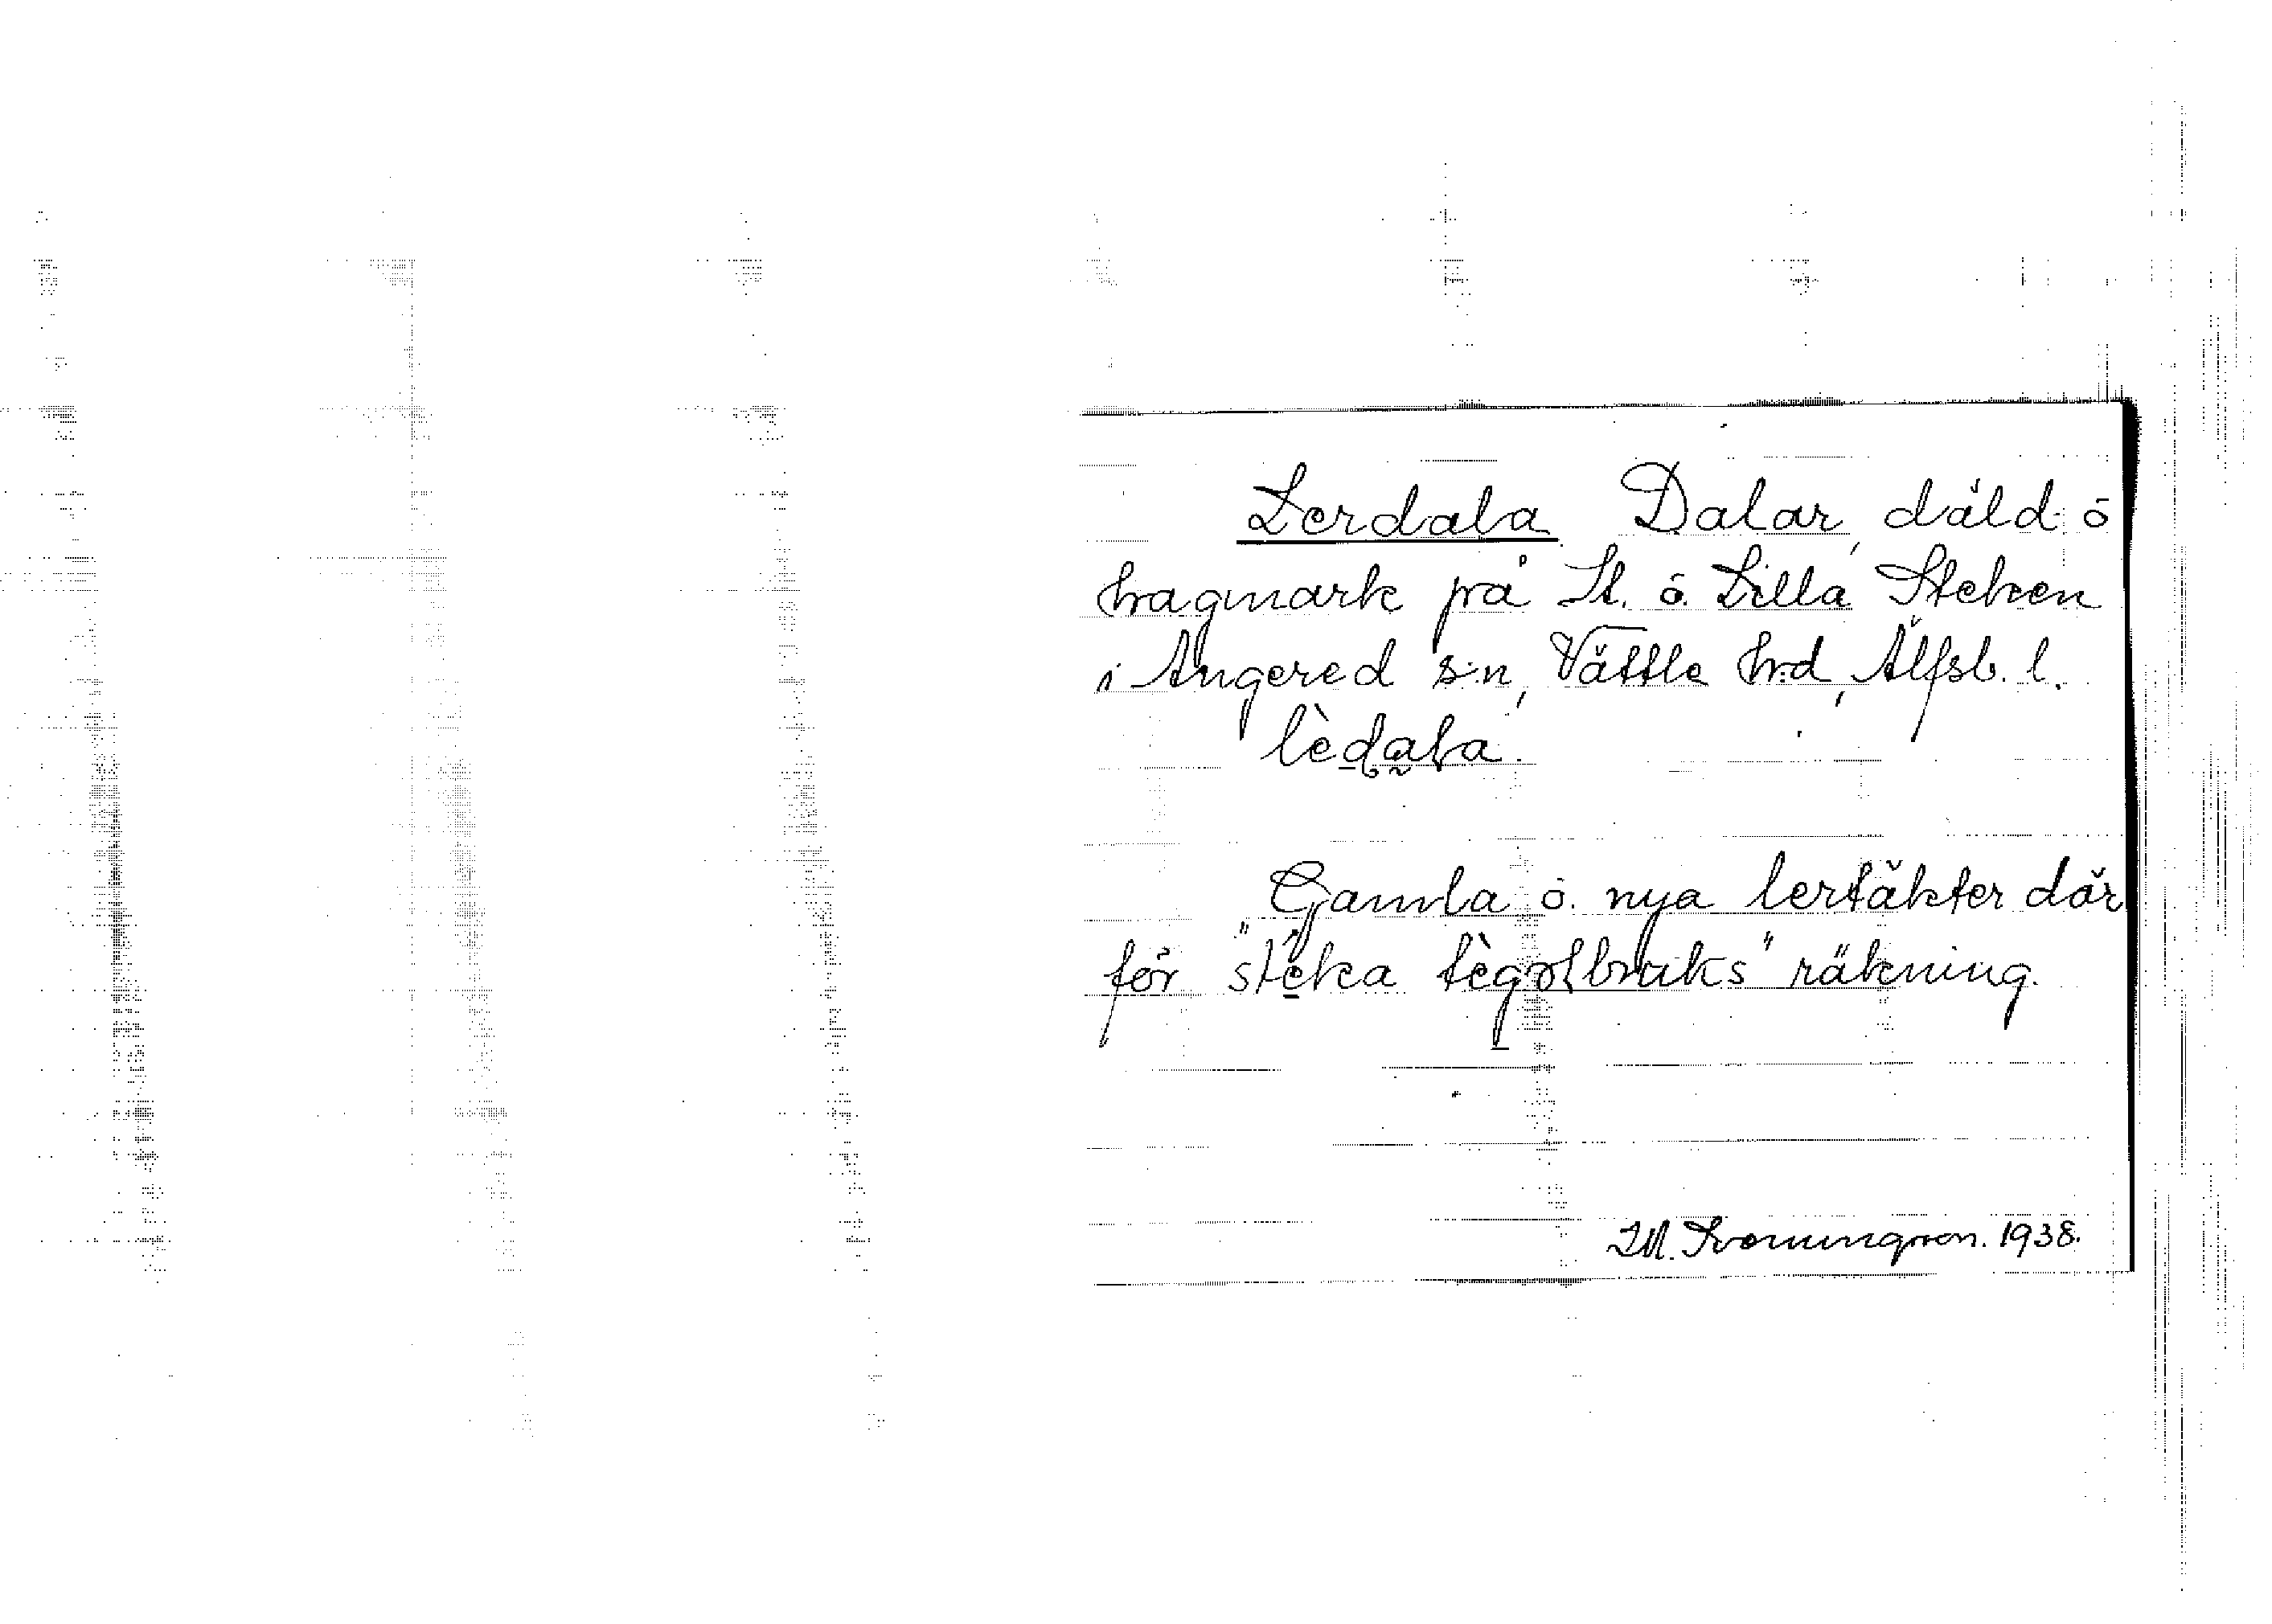 Lerdala Dalar, däld o
hagmark på St. o. Lilla Steken
i Angered s:n, Vättle h:d, Älfsb. l.
lèdala.
Gamla o. nya lertäkter där
för "steka tègolbruks" räkning.
1938.